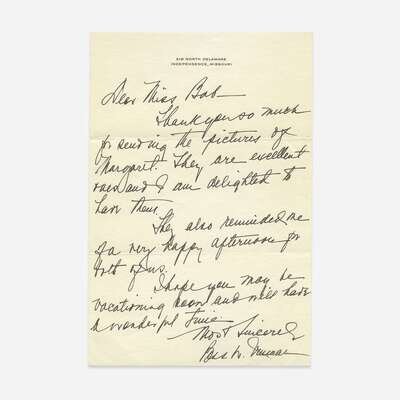 219 NORTH DELAWARE
INDEPENDENCE, MISSOURI
Dear Miss Bab-
Thank you so much
for sending the pictures of
Margaret. They are excellent
ones and I am delighted to
have them.
They also reminded me
of a very happy afternoon for
both of us.
I hope you may be
vacationing soon and will have
a wonderful time
Most Sincerely
Bess W. Truman